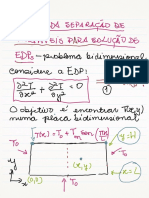 DA SEPARAÇÃO DE
PARA SOLUÇÃO DE
EDPs - problema bidimensional
considere a EDP:
∂²T/∂x² + ∂²T/∂y² = 0
O objetivo é encontrar T(x,y)
numa placa bidimensional
T(x) = T₀ + Tₘ sen(πx
y
T₀
(x,y)
T₀
(0,0)
T₀
x